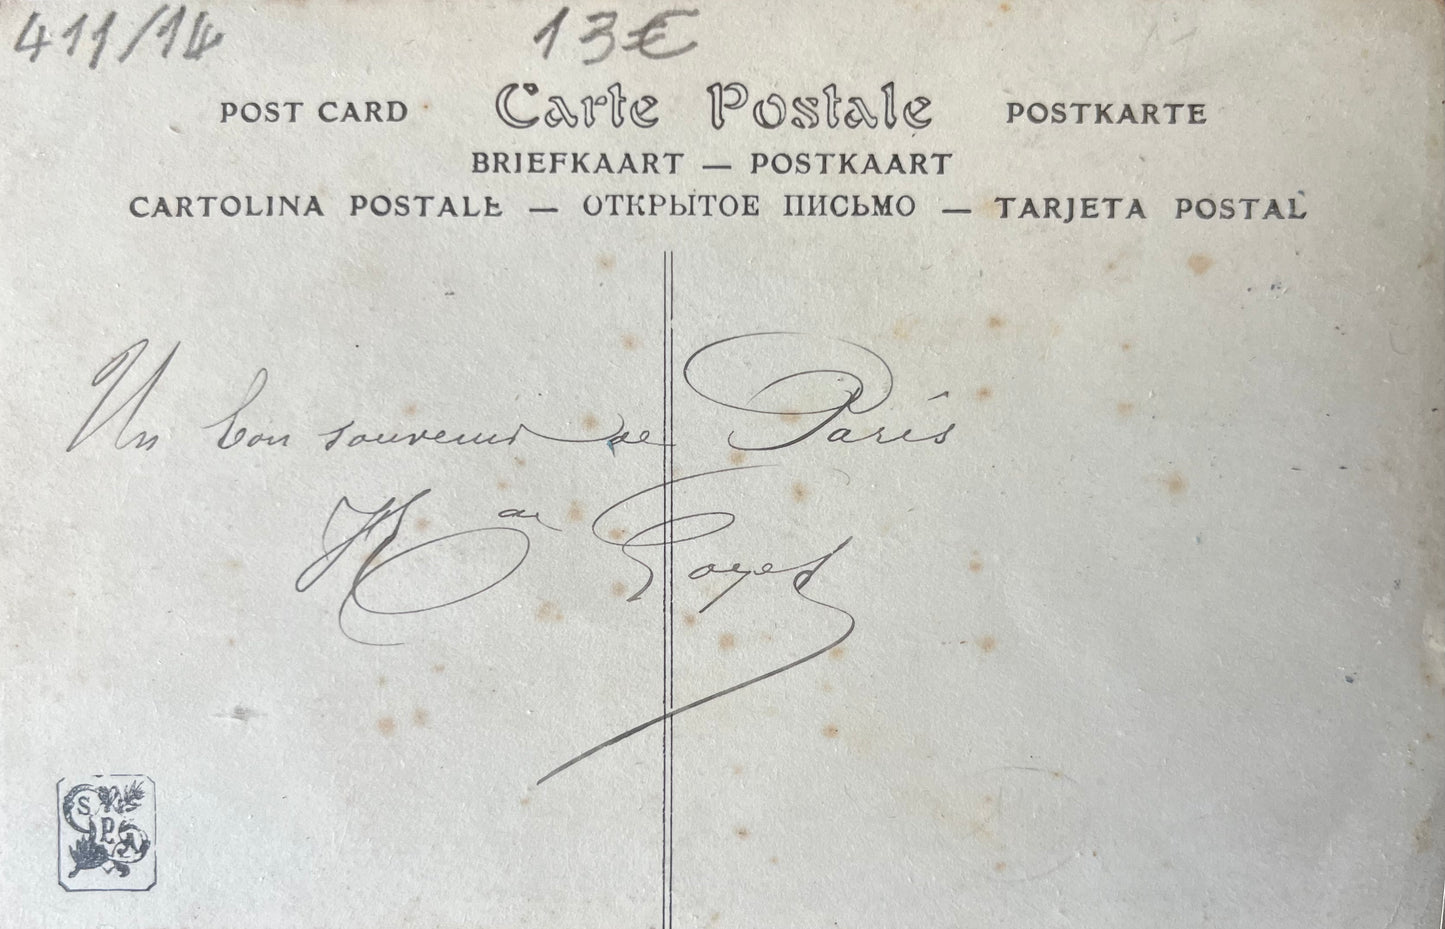 411/14 13€
POST CARD Carte Postale POSTKARTE
BRIEFKAART — POSTKAART
CARTOLINA POSTALE — ОТКРЫТОЕ ПИСЬМО — TARJETA POSTAL
Un bon souvenir de Paris
H de
SPA